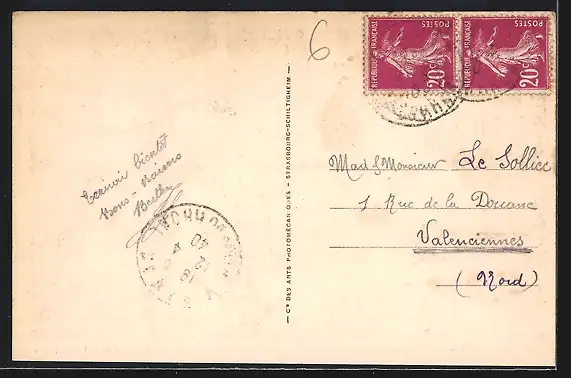 6
REPUBLIQUE FRANÇAISE
POSTES
20c
REPUBLIQUE FRANÇAISE
POSTES
20c
bientôt
Bons - Baisers
Berthe
Le Sollier
1 Rue de la Douane
Valenciennes
(Nord)
— Cie DES ARTS PHOTOMÉCANIQUES — STRASBOURG-SCHILTIGHEIM —
18
12
40